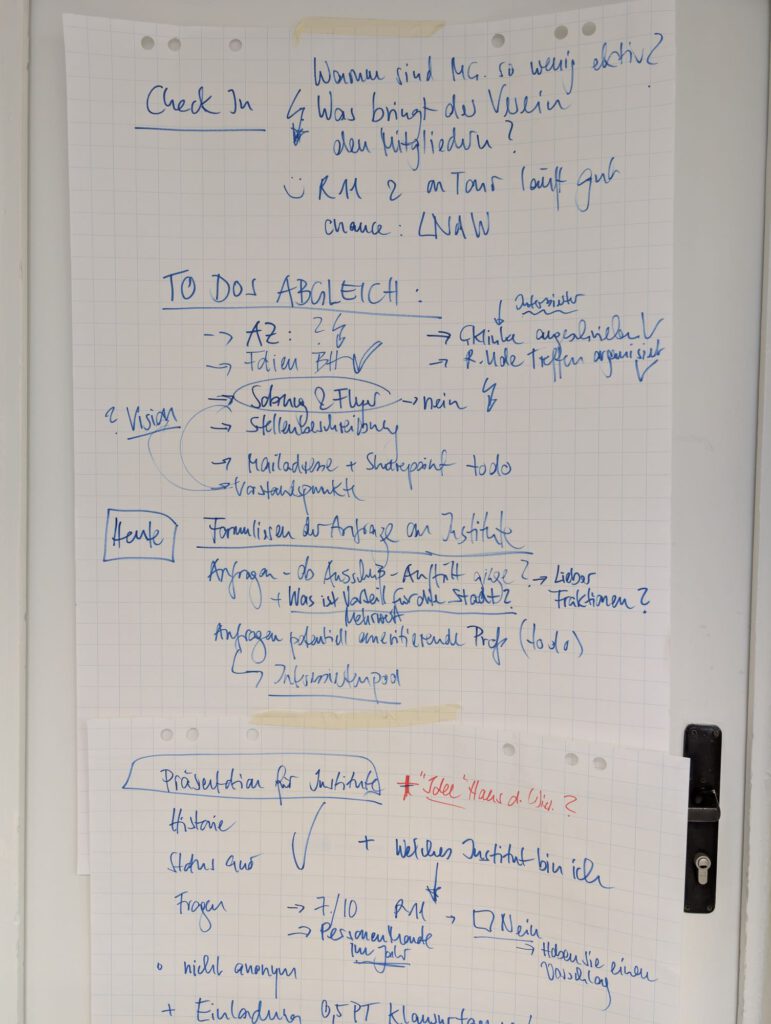 Check In
Warum sind MG. so wenig aktiv?
Was bringt der Verein
den Mitgliedern?
R11 2 on Tour läuft gut
chance: LNdW
TO DOS ABGLEICH:
→ AZ: ?
→ Folien BH ✓
→ Satzung & Flyer → nein
→ Stellenbeschreibung
→ Mailadresse + Sharepoint todo
→ Vorstandspunkte
? Vision
→ angeschrieben ✓
→ R. Treffen organisiert ✓
Heute
Formulieren der Anfrage an Institute
Anfragen - ob Ausschuß - Auftritt ginge? → Lieber
Fraktionen?
+ Was ist Vorteil für die Stadt?
Mehrwert
Anfragen potentiell emeritierende Profs (todo)
Präsentation für Institute
+ "Idee" Haus d. Wiss. ?
Historie
Status quo
✓
+ Welches Institut bin ich
Fragen
→ 7/10 R11
→ Personen
im Jahr
→ Nein
→ Haben sie einen
Vorschlag
nicht anonym
+ Einladung 0,5 PT